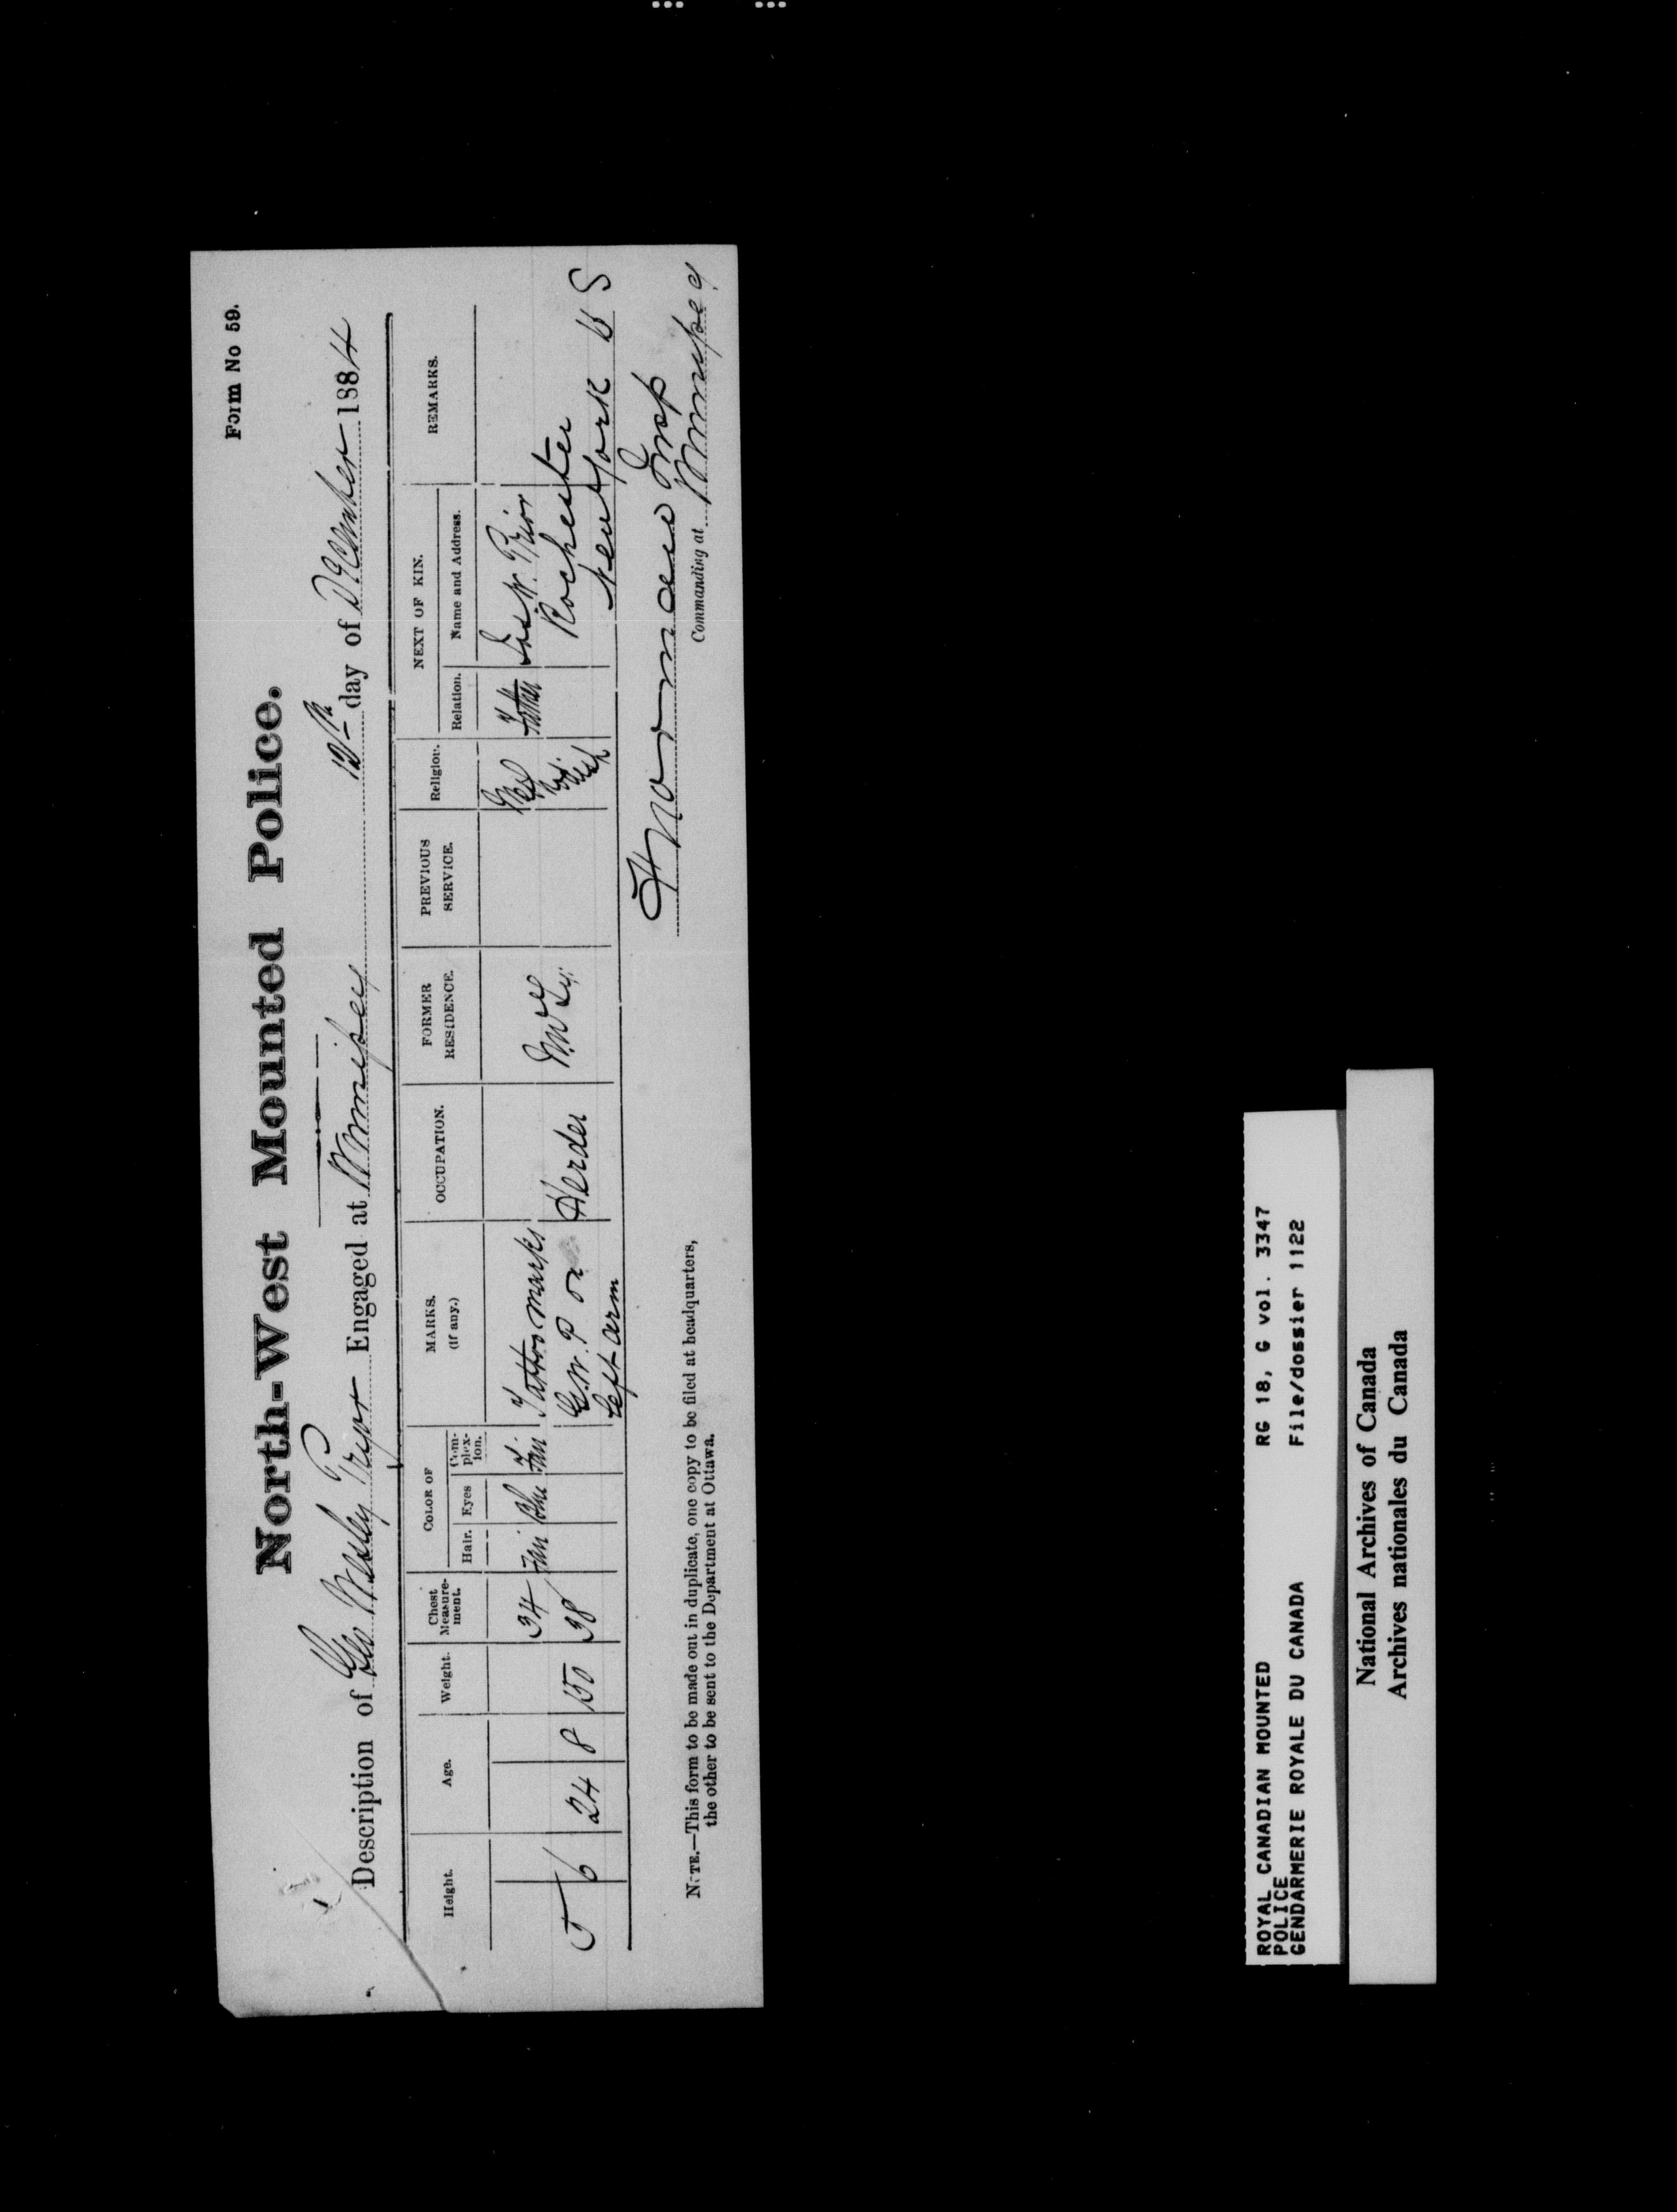 Form No 59.
North-West Mounted Police.
Description of Geo Wesley Pryor Engaged at Winnipeg 12th day of December 1884
Height. Age. Weight. Chest Measurement. COLOR OF Hair. Eyes Complexion. MARKS. (if any.) OCCUPATION. FORMER RESIDENCE. PREVIOUS SERVICE. Religion. NEXT OF KIN. Relation. Name and Address. REMARKS.
34 Fair Blue Fair Tattoo marks Father W. Prior
5 6 24 8 150 38 G.W.P on Herder Rochester
left arm New York U S
Insp
Commanding at Winnipeg
NOTE.—This form to be made out in duplicate, one copy to be filed at headquarters,
the other to be sent to the Department at Ottawa.
ROYAL CANADIAN MOUNTED RG 18, G vol. 3347
POLICE
GENDARMERIE ROYALE DU CANADA File/dossier 1122
National Archives of Canada
Archives nationales du Canada